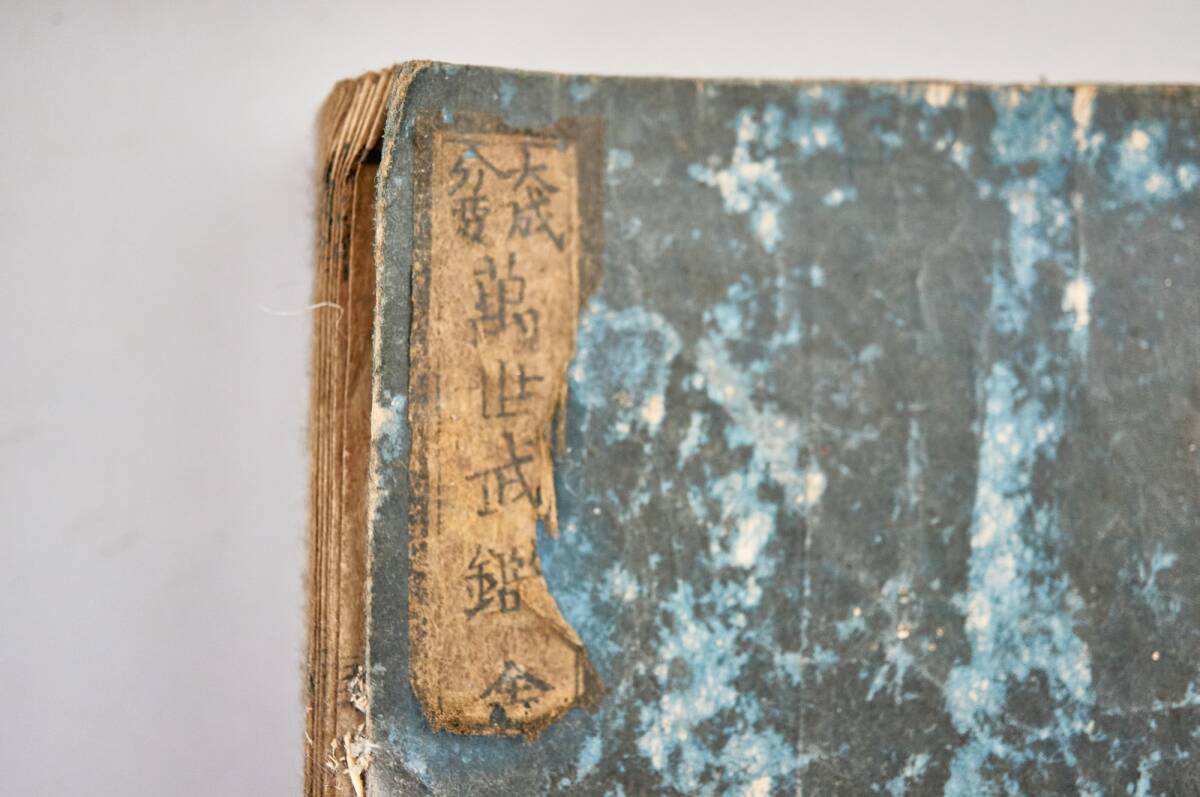 大成
分要
萬世武鑑
全